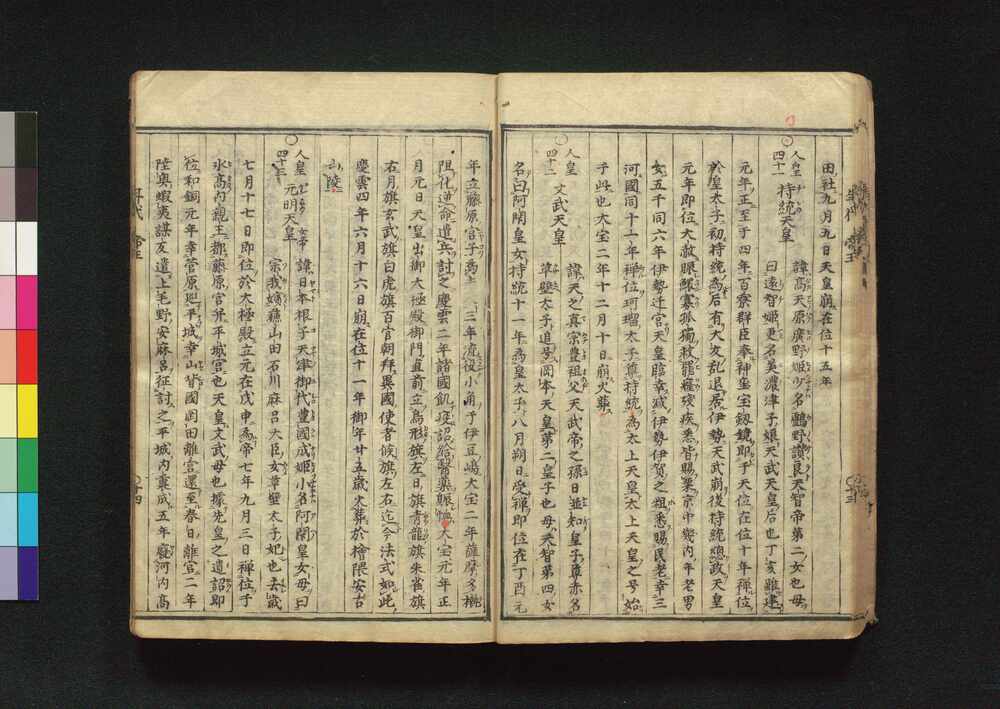 田社九月九日天皇崩在位十五年
人皇四十一 持統天皇 諱高天原廣野姫少名鸕野讚良天智帝第二女也母
曰遠智姫更名美濃津子娘天武天皇后也丁亥雖建
元年正至于四年百寮群臣奉神璽宝剱鏡即于天位在位十年禅位
於皇太子初持統為后有大友乱退居伊勢天武崩後持統總政天皇
元年即位大赦眼鰥寡孤獨救篤癃殘疾悉皆賜粟京中畿内年老男
女五千同六年伊勢迁宮天皇臨幸减伊勢伊賀之租悉賜民老幸三
河國同十一年禅位珂瑠太子尊持統為太上天皇太上天皇之号始
于此也大宝二年十二月十日崩火葬
人皇四十二 文武天皇 諱天之真宗豊祖父天武帝之孫日並知皇子尊亦名
草壁太子追号岡本天皇第二皇子也母天智第四女
名曰阿閇皇女持統十一年為皇太子八月朔日受禅即位在丁酉元
年立藤原宮子為 三年流役小角于伊豆嶋大宝二年薩摩多褹
阻化逆命遣兵討之慶雲二年諸國飢疫詔給醫藥賑恤大宝元年正
月元日天皇出御大極殿御門直前立烏形旗左日旗青龍旗朱雀旗
右月旗玄武旗白虎旗百官朝拜異國使者候旗左右迄今法式如此
慶雲四年六月十六日崩在位十一年御年廿五歳火葬於檜隈安古
山陵
人皇四十三 元明天皇 諱日本根子天津御代豊國成姫小名阿閇皇女母曰
宗我嬪蘇山田石川麻呂大臣女草壁太子妃也去歳
七月十七日即位於大極殿立元在戊申為帝七年九月三日禅位于
氷高内親王都藤原宮并平城宮也天皇文武母也據先皇之遺詔即
位和銅元年幸菅原廵平城幸山背國岡田離宮還至春日離宮二年
陸奥蝦夷謀反遣上毛野安麻呂征討之平城内裏成五年廢河内高